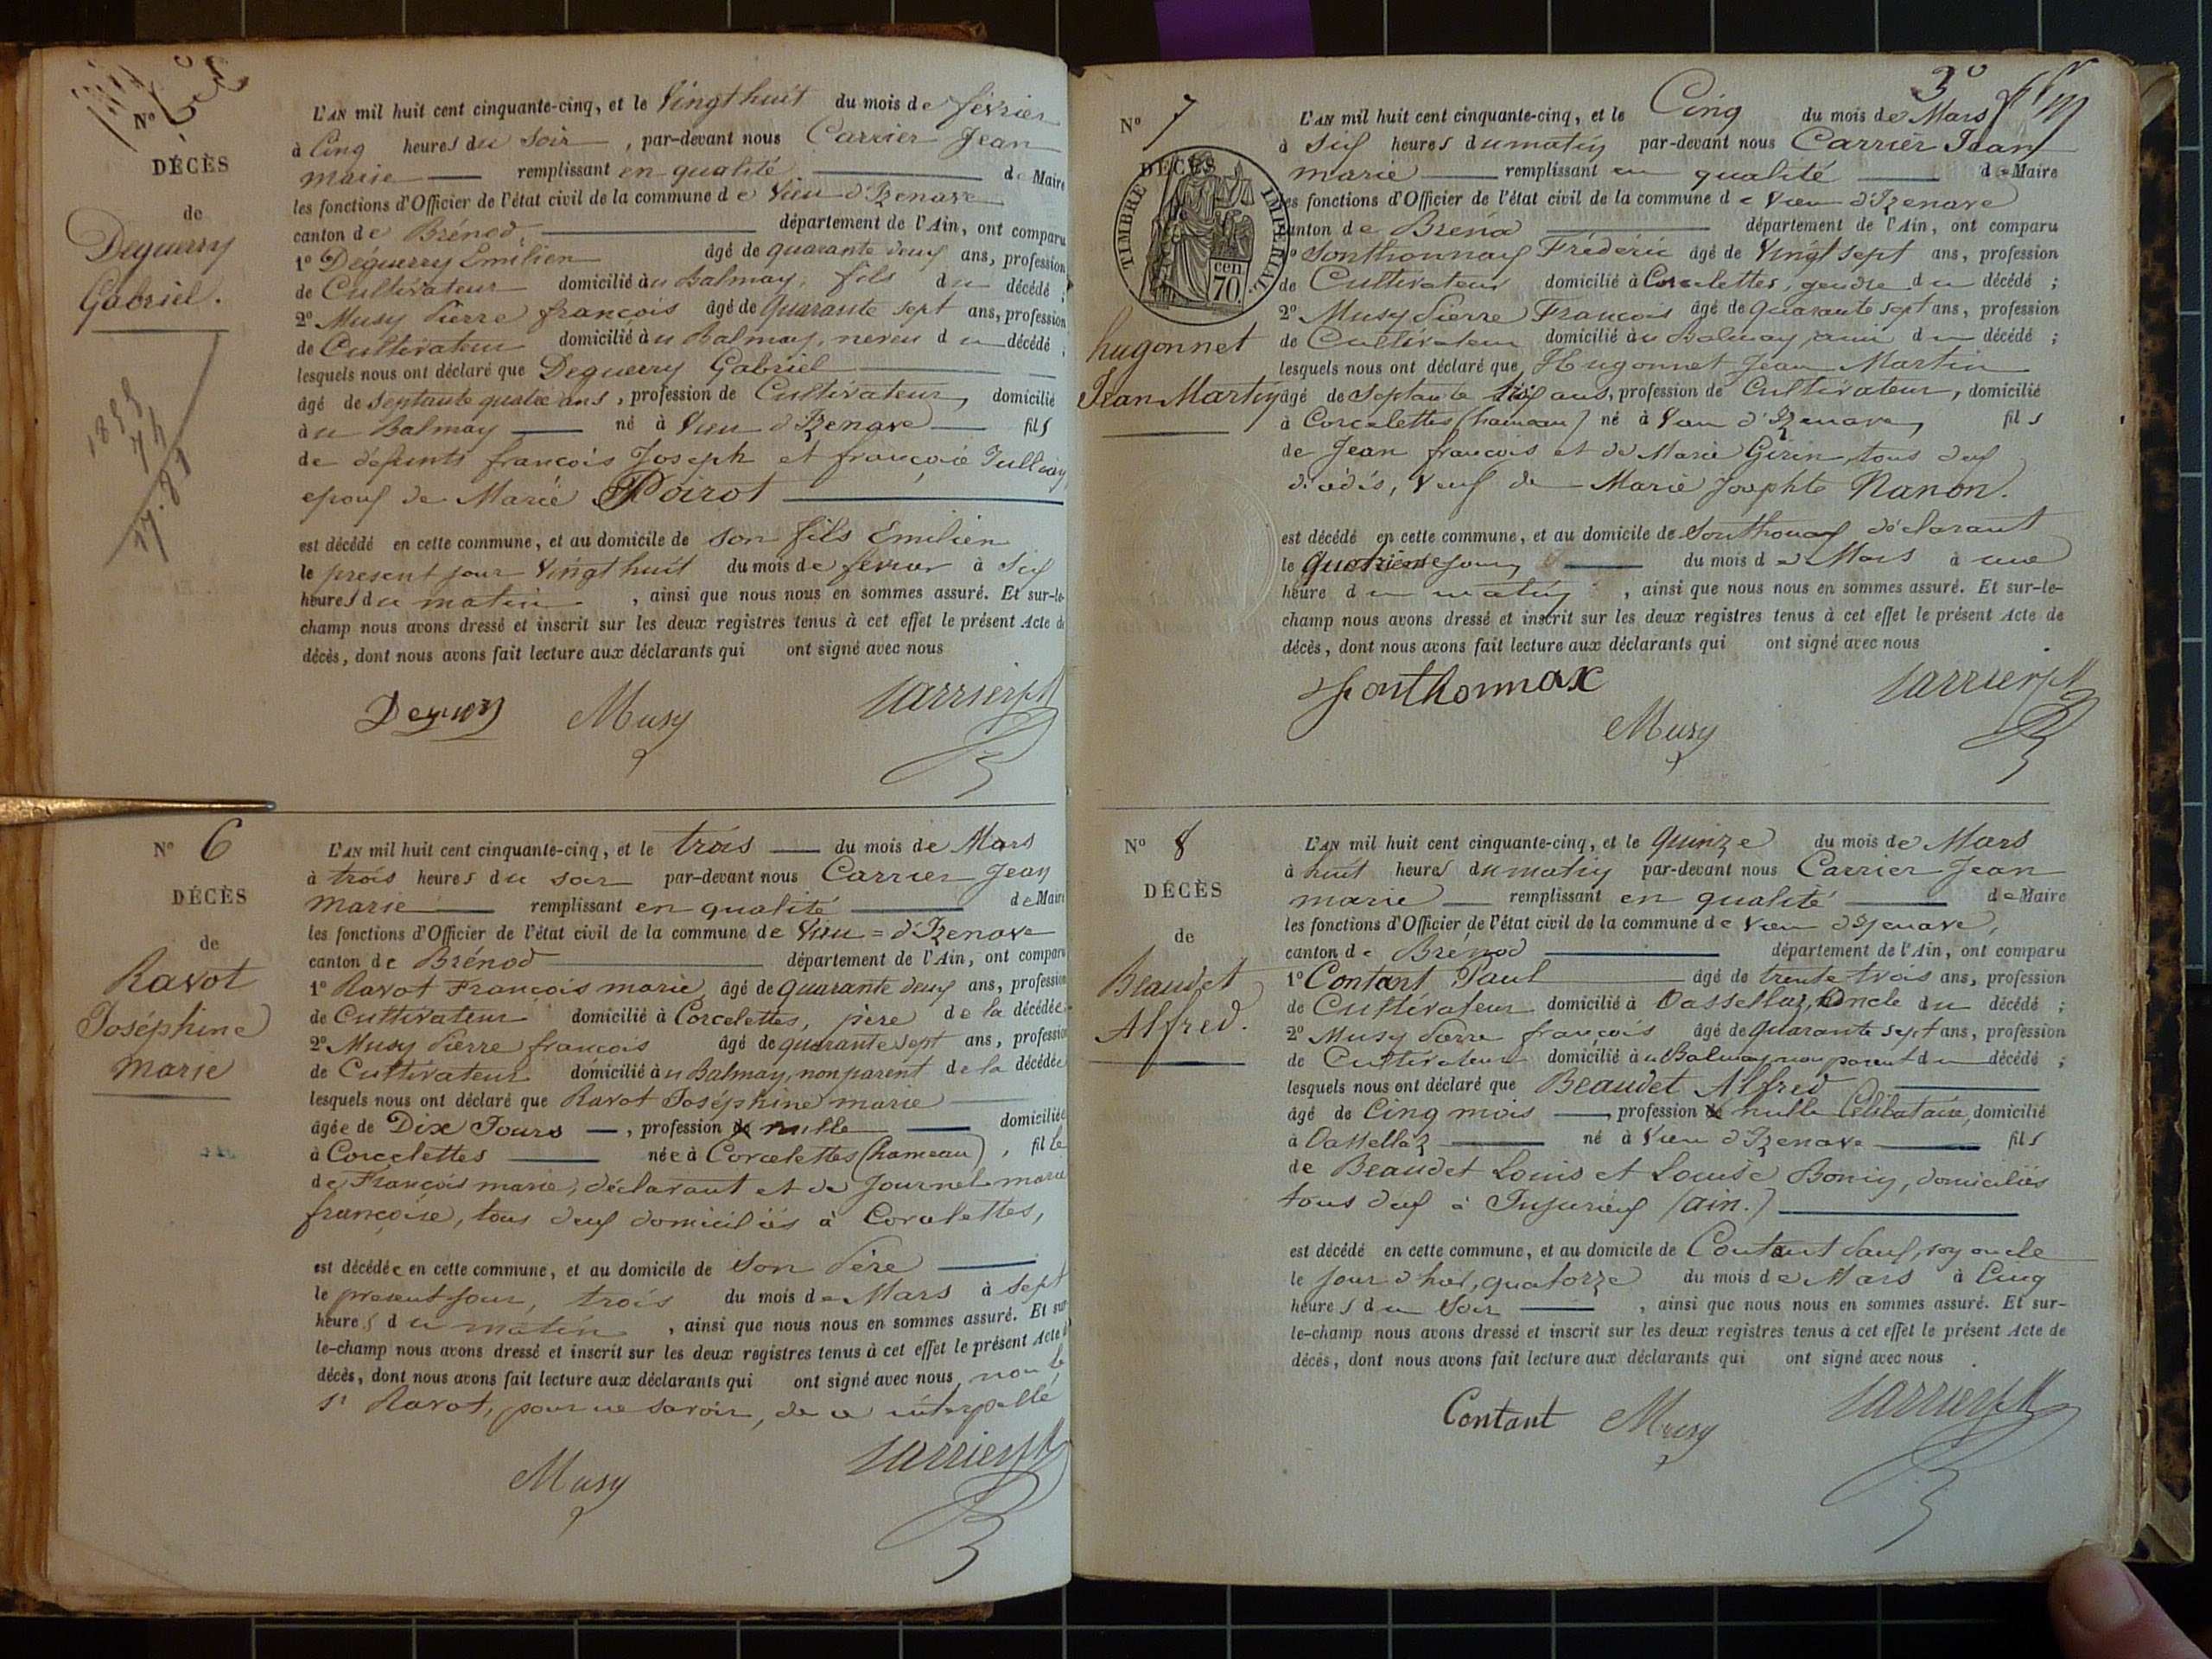 N° 5
DÉCÈS
de
Deguerry
Gabriel.
1855
74
17.81
L'AN mil huit cent cinquante-cinq, et le Vingt huit du mois de février
à Cinq heures du Soir, par-devant nous Carrier Jean
marie remplissant en qualité de Maire
les fonctions d'Officier de l'état civil de la commune de Vieu d'Izenave
canton de Brénod, département de l'Ain, ont comparu
1° Déguerry Emilien âgé de quarante deux ans, profession
de Cultivateur domicilié au Balmay, fils du décédé ;
2° Musy Pierre françois âgé de Quarante sept ans, profession
de Cultivateur domicilié au Balmay, neveu du décédé ;
lesquels nous ont déclaré que Deguerry Gabriel
âgé de Septante quatre ans, profession de Cultivateur, domicilié
au Balmay né à Vieu d'Izenave fils
de défunts françois Joseph et françoise Julliay,
epoux de Marie Poirot
est décédé en cette commune, et au domicile de son fils Emilien
le présent jour Vingt huit du mois de fevrier à Six
heures du matin, ainsi que nous nous en sommes assuré. Et sur-le-
champ nous avons dressé et inscrit sur les deux registres tenus à cet effet le présent Acte de
décès, dont nous avons fait lecture aux déclarants qui ont signé avec nous
Musy Carrier JM
N° 6
DÉCÈS
de
Ravot
Joséphine
marie
L'AN mil huit cent cinquante-cinq, et le trois du mois de Mars
à trois heures du soir par-devant nous Carrier Jean
Marie remplissant en qualité de Maire
les fonctions d'Officier de l'état civil de la commune de Vieu = d'Izenave
canton de Brénod département de l'Ain, ont comparu
1° Ravot François marie, âgé de quarante deux ans, profession
de Cultivateur domicilié à Corcelettes, père de la décédée
2° Musy Pierre françois âgé de quarante sept ans, profession
de Cultivateur domicilié au Balmay, non parent de la décédée
lesquels nous ont déclaré que Ravot Joséphine marie
âgée de Dix Jours, profession de nulle domiciliée
à Corcelettes née à Corcelettes (hameau), fille
de François marie, déclarant et de Journel marie
françoise, tous deux domiciliés à Corcelettes,
est décédée en cette commune, et au domicile de son Père
le present jour, trois du mois de Mars à sept
heures du matin, ainsi que nous nous en sommes assuré. Et sur
le-champ nous avons dressé et inscrit sur les deux registres tenus à cet effet le présent Acte de
décès, dont nous avons fait lecture aux déclarants qui ont signé avec nous, non le
Sr Ravot, pour ne savoir, de ce interpellé
Musy Carrier JM
3°
N° 7
DÉCÈS
TIMBRE IMPERIAL
cen.
70.
hugonnet
Jean Martin
L'AN mil huit cent cinquante-cinq, et le Cinq du mois de Mars
à Six heures du matin par-devant nous Carrier Jean
marie remplissant en qualité de Maire
les fonctions d'Officier de l'état civil de la commune de Vieu d'Izenave
canton de Brénod département de l'Ain, ont comparu
1° Sonthonnax Fréderic âgé de Vingt sept ans, profession
de Cultivateur domicilié à Corcelettes, gendre du décédé ;
2° Musy Pierre François âgé de Quarante sept ans, profession
de Cultivateur domicilié au Balmay, ami du décédé ;
lesquels nous ont déclaré que Hugonnet Jean Martin
âgé de Septante six ans, profession de Cultivateur, domicilié
à Corcelettes (hameau) né à Vieu d'Izenave, fils
de Jean françois et de Marie Girin tous deux
décédés, Veuf de Marie Josephte Nanon.
est décédé en cette commune, et au domicile de Sonthonax déclarant
le Quatrième jour du mois de Mars à une
heure du matin, ainsi que nous nous en sommes assuré. Et sur-le-
champ nous avons dressé et inscrit sur les deux registres tenus à cet effet le présent Acte de
décès, dont nous avons fait lecture aux déclarants qui ont signé avec nous
Sonthonnax Musy Carrier JM
N° 8
DÉCÈS
de
Beaudet
Alfred.
L'AN mil huit cent cinquante-cinq, et le Quinze du mois de Mars
à huit heures du matin par-devant nous Carrier Jean
marie remplissant en qualité de Maire
les fonctions d'Officier de l'état civil de la commune de Vieu d'Izenave,
canton de Brénod département de l'Ain, ont comparu
1° Contant Paul âgé de trente trois ans, profession
de Cultivateur domicilié à Oassellaz, Oncle du décédé ;
2° Musy Pierre françois âgé de Quarante sept ans, profession
de Cultivateur domicilié au Balmay non parent du décédé ;
lesquels nous ont déclaré que Beaudet Alfred
âgé de Cinq mois, profession de nulle Célibataire, domicilié
à Oassellaz né à Vieu d'Izenave fils
de Beaudet Louis et Louise Bonin, domiciliés
tous deux à Jujurieux (ain.)
est décédé en cette commune, et au domicile de Contant Paul, son oncle
le jour d'hier, quatorze du mois de Mars à Cinq
heures du Soir, ainsi que nous nous en sommes assuré. Et sur-
le-champ nous avons dressé et inscrit sur les deux registres tenus à cet effet le présent Acte de
décès, dont nous avons fait lecture aux déclarants qui ont signé avec nous
Contant Musy Carrier JM